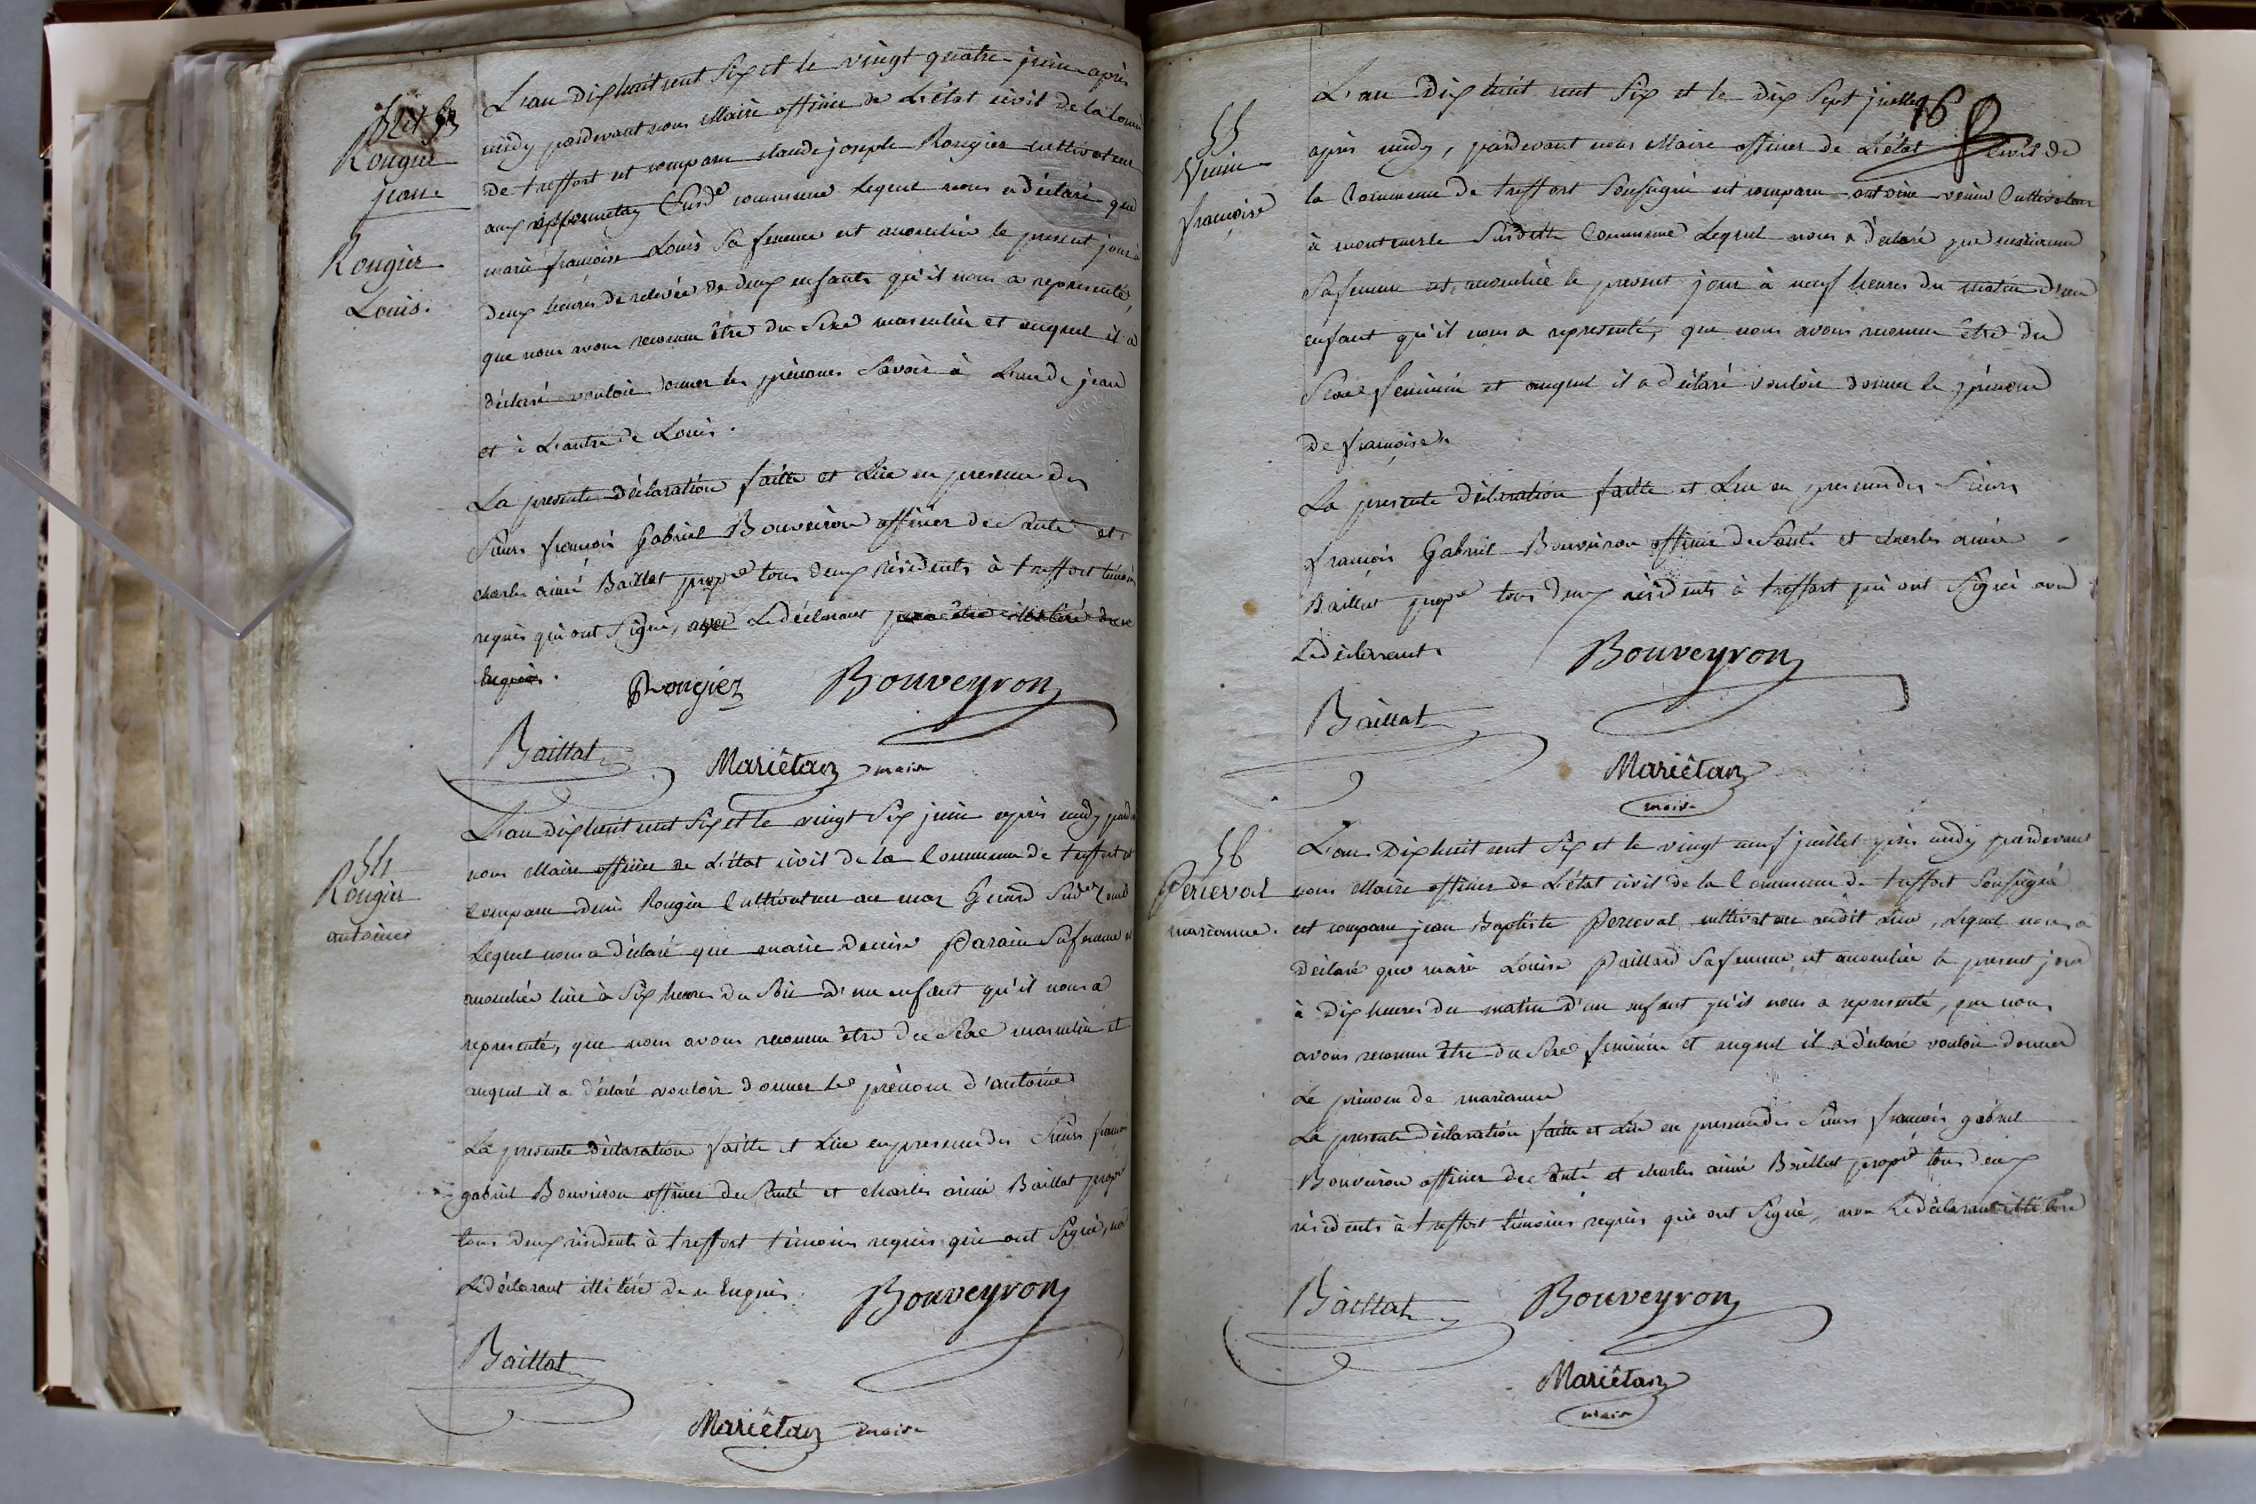 Rougier
jean
Rougier
Louis.
L'an dix huit cent Six et le vingt quatre juin après
midy pardevant nous Maire officier de L'état civil de la Comm
de treffort est comparu claude joseph Rougier cultivateur
aux commune Lequel nous a déclaré que
marie françoise Louis Sa femme est accouchée le present jour à
deux heures de relevée de deux enfants qu'il nous a representé,
que nous avons reconnu être du Sexe masculin et auquel il a
déclaré vouloir donner les prénoms Savoir à L'un de jean
et à L'autre de Louis.
La presente déclaration faitte et Lüe en presence des
Sieurs françois Gabriel Bouveiron officier de Santé et
charles aimé Baillat prop.e tous deux résidents à treffort témoins
requis qui ont Signé, avec Le déclarant
Enquis.
Rougiez Bouveyron
Baillat Mariétan maire
54
Rougier
antoine
L'an dix huit cent Six et le vingt Six juin après midy pard
nous Maire officier de L'état civil de la Commune de treffort est
Comparu denis Rougier Cultivateur au mas
Lequel nous a déclaré que marie denise Parain Sa femme est
accouchée hier à Six heures du Soir d'un enfant qu'il nous a
representé, que nous avons reconnu être du Sexe masculin et
auquel il a déclaré vouloir donner le prénom d'antoine
La presente déclaration faitte et Lüe en presence des Sieurs françois
gabriel Bouveiron officier de Santé et charles aimé Baillat prop.e
tous deux résidents à treffort témoins requis qui ont Signé, non
Le déclarant illitéré de ce Enquis.
Bouveyron
Baillat
Mariétan maire
16
55
Venin
françoise
L'an dix huit cent Six et le dix Sept juillet
après midy, pardevant nous Maire officier de L'état Civil de
la Commune de treffort Soussigné est comparu antoine venin Cultivateur
à montmerle Susditte Commune Lequel nous a déclaré que
Sa femme est accouchée le present jour à neuf heures du matin d'un
enfant qu'il nous a representé, que nous avons reconnu être du
Sexe feminin et auquel il a déclaré vouloir donner le prénom
de françoise.
La presente déclaration faitte et Lue en presence des Sieurs
françois Gabriel Bouveiron officier de Santé et charles aimé
Baillat prop.e tous deux résidents à treffort qui ont Signé avec
Le déclarant.
Bouveyron
Baillat
Mariétan
maire
56
Perceval
marianne.
L'an Dix huit cent Six et le vingt neuf juillet après midy pardevant
nous Maire officier de L'état civil de la Commune de treffort Soussigné
est comparu jean Baptiste Perceval cultivateur audit Lieu, Lequel nous a
déclaré que marie Louise Paillard Sa femme est accouchée le present jour
à dix heures du matin d'un enfant qu'il nous a representé, que nous
avons reconnu être du Sexe feminin et auquel il a déclaré vouloir donner
Le prénom de marianne
La presente déclaration faitte et Lüe en presence des Sieurs françois gabriel
Bouveiron officier de Santé et charles aimé Baillat prop.e tous deux
résidents à treffort témoins requis qui ont Signé, non Le déclarant illitéré
Baillat Bouveyron
Mariétan
maire